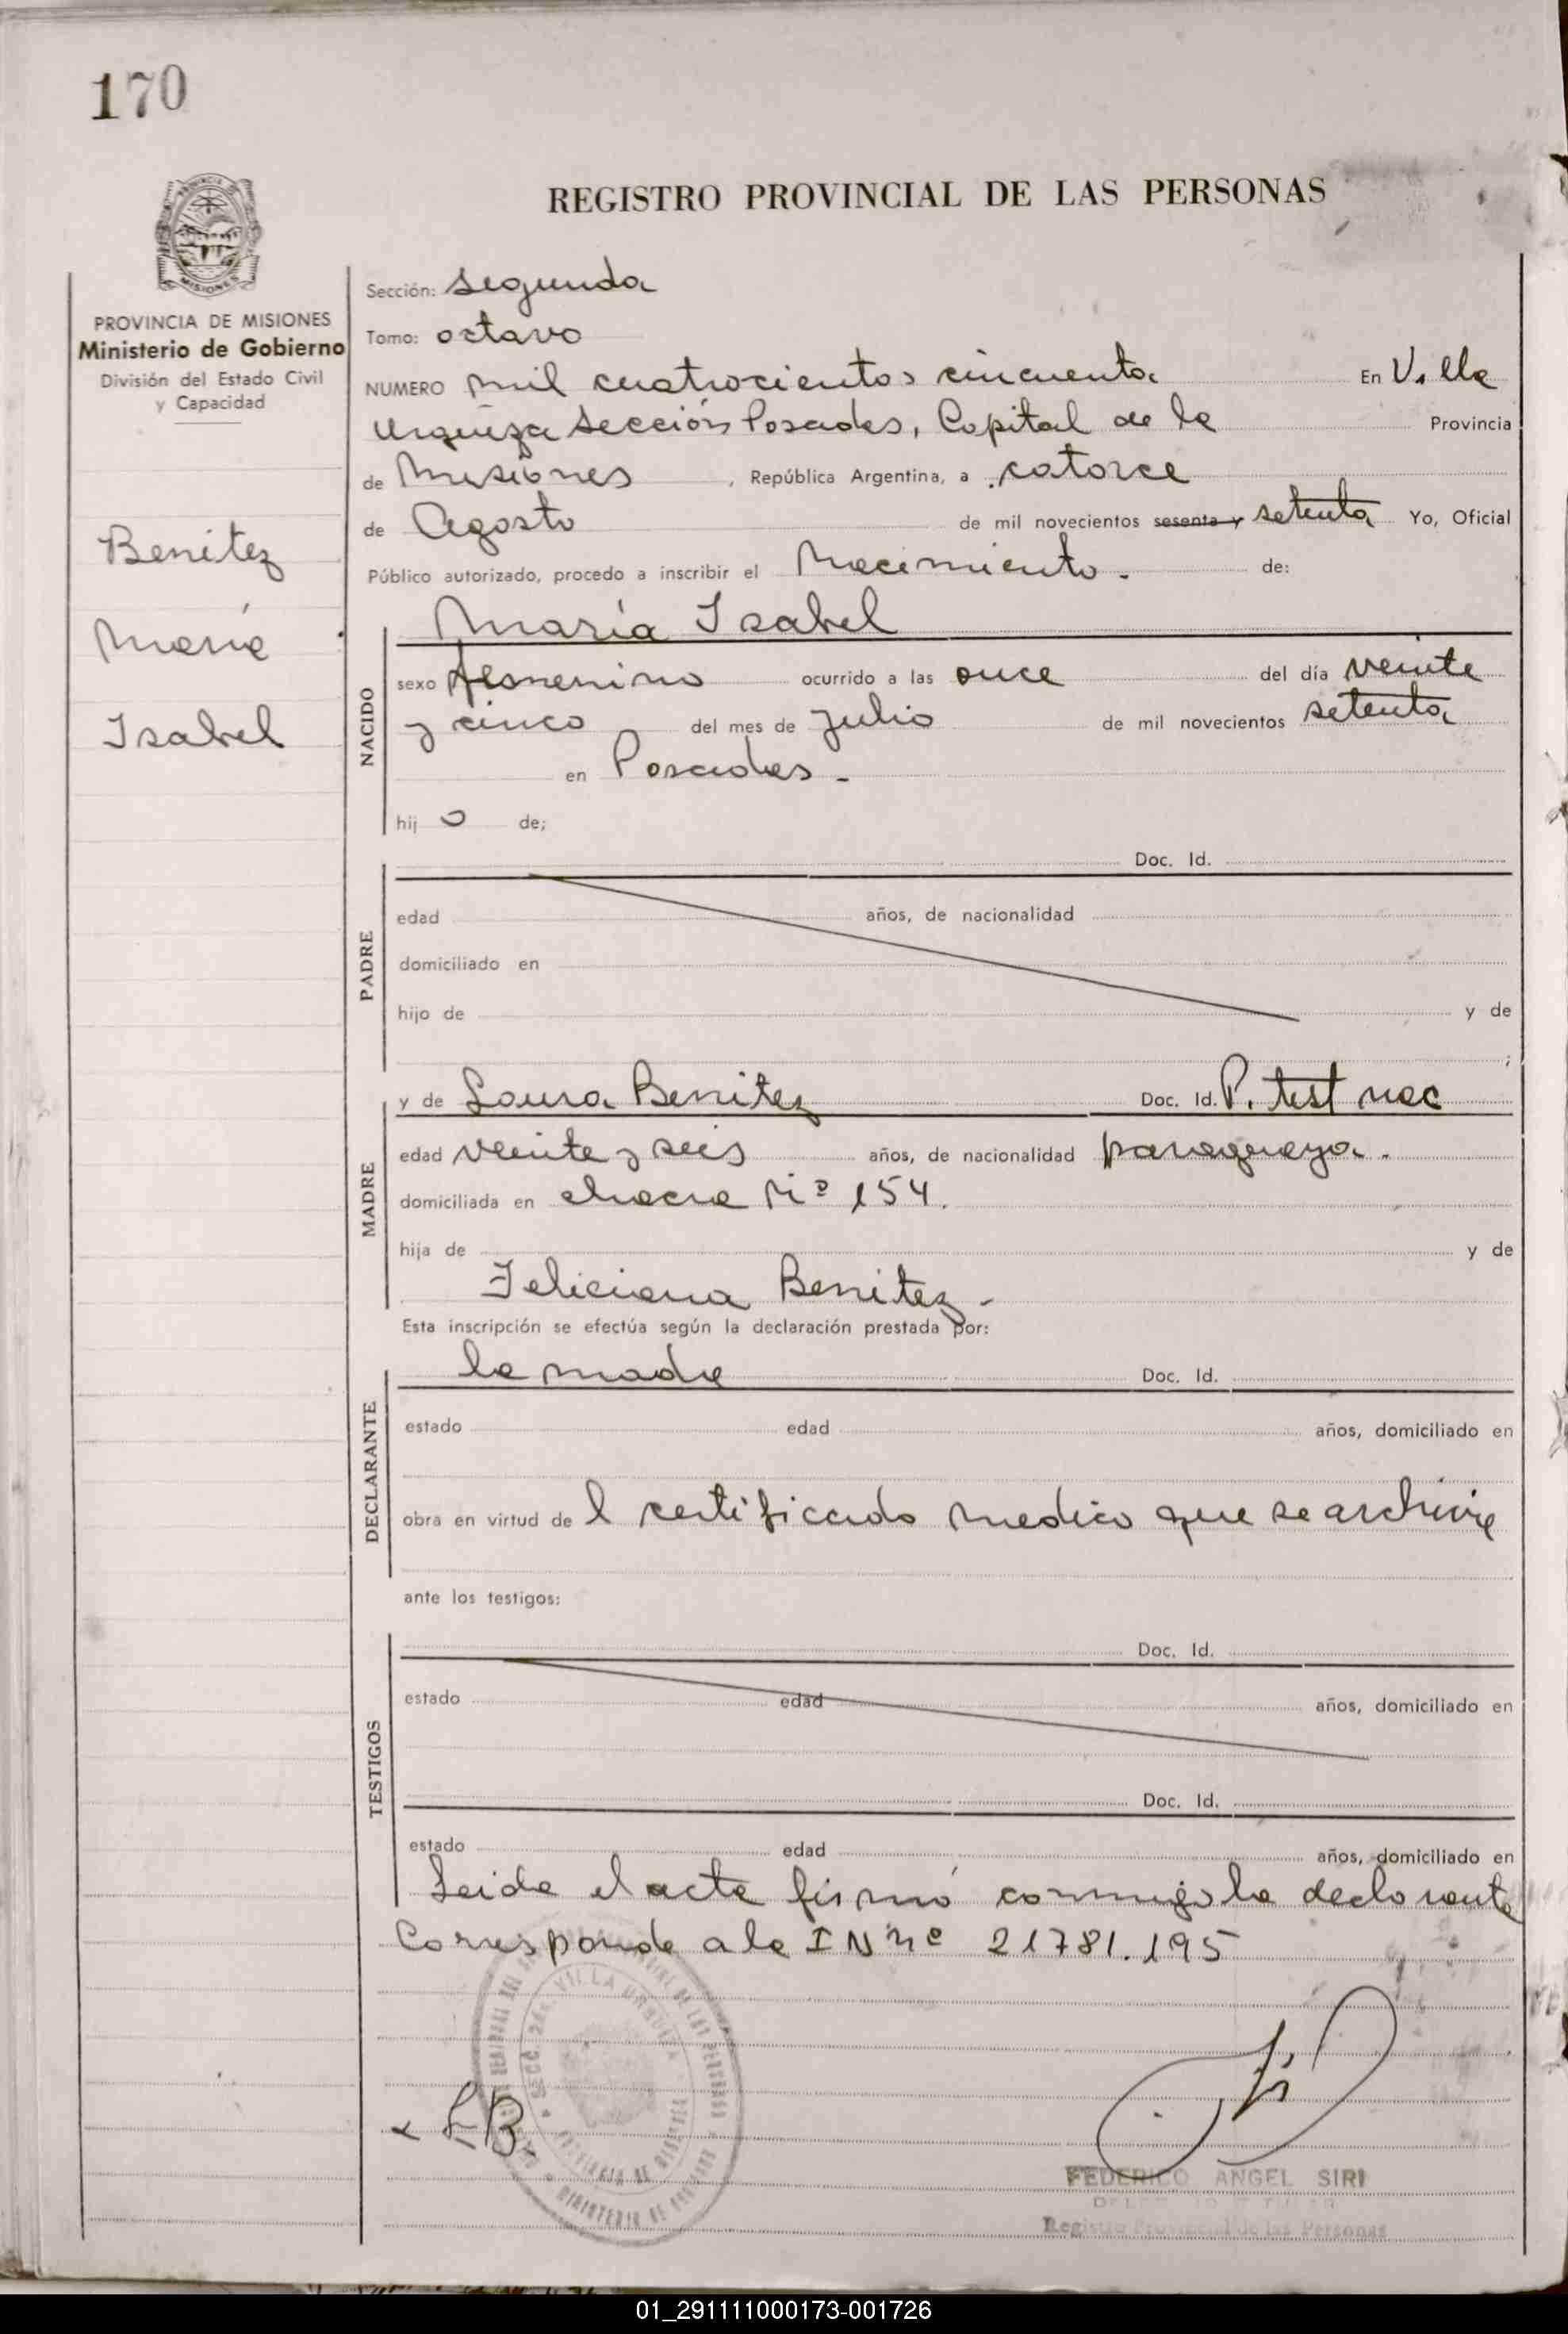 170
REGISTRO PROVINCIAL DE LAS PERSONAS
PROVINCIA DE MISIONES
Ministerio de Gobierno
División del Estado Civil
y Capacidad
Benitez
María
Isabel
Sección: segunda
Tomo: octavo
NUMERO mil cuatrocientos cincuenta En Villa
Urquiza Sección Posadas, Capital de la Provincia
de Misiones, República Argentina, a catorce
de Agosto de mil novecientos sesenta y setenta Yo, Oficial
Público autorizado, procedo a inscribir el Nacimiento. de:
NACIDO
María Isabel
sexo femenino ocurrido a las once del día veinte
y cinco del mes de julio de mil novecientos setenta
en Posadas -
hij o de;
PADRE
Doc. Id.
edad años, de nacionalidad
domiciliado en
hijo de y de
;
MADRE
y de Laura Benitez Doc. Id. P. test nac
edad veinte y seis años, de nacionalidad paraguaya.
domiciliada en chacra Nº 154.
hija de y de
Feliciana Benitez -
Esta inscripción se efectúa según la declaración prestada por:
DECLARANTE
la madre Doc. Id.
estado edad años, domiciliado en
obra en virtud de l certificado medico que se archiva
ante los testigos:
TESTIGOS
Doc. Id.
estado edad años, domiciliado en
Doc. Id.
estado edad años, domiciliado en
Leida el acta firmó conmigo la declarante
Corresponde a la I Nnº 21781.195
L B.
FEDERICO ANGEL SIRI
Registro Provincial de las Personas
01_291111000173-001726